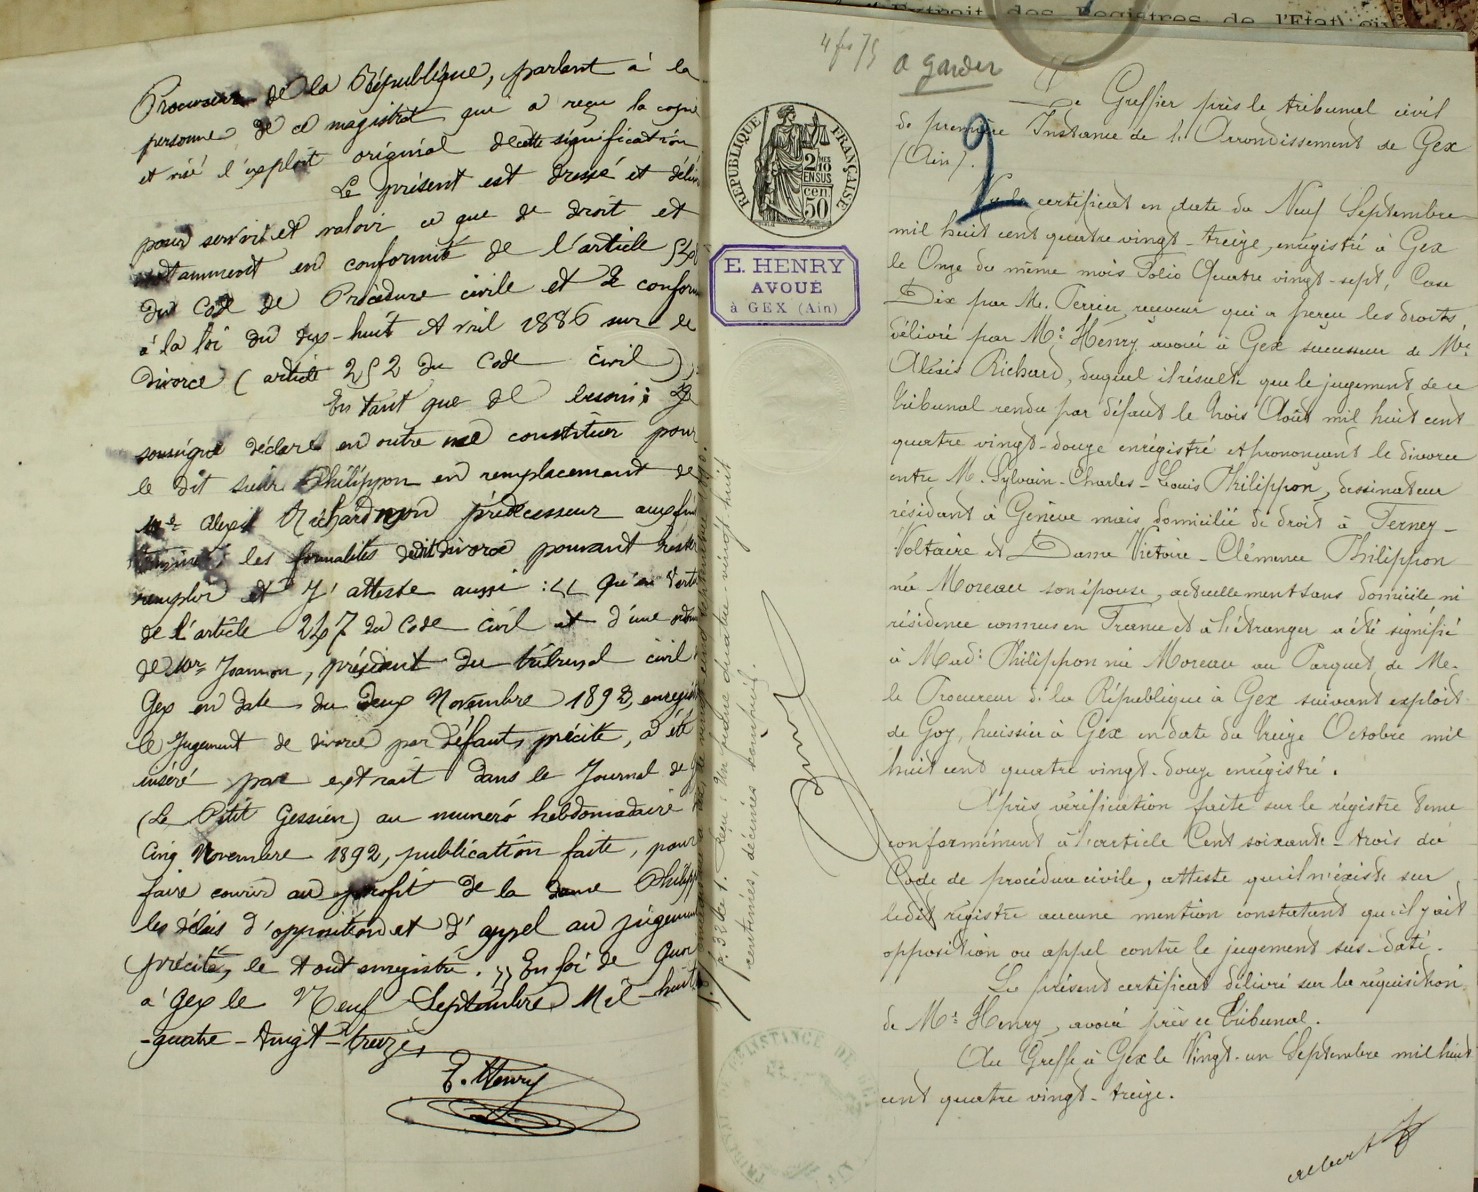 Procureur de la République, parlant à la
personne de ce magistrat qui a reçu la copie
et visé l'exploit original de cette signification
Le présent est dressé et déliv
pour servir et valoir ce que de droit et
notamment en conformité de l'article 548
du Code de Procédure civile et de conform
à la loi du dix-huit Avril 1886 sur le
divorce (article 252 du Code civil);
En tant que de besoin; Le
soussigné déclare en outre me constituer pour
le dit sieur Philippon en remplacement de
Me Alexis Richard mon prédécesseur aux fins
les formalités dudit divorce pouvant rester
remplir et J'atteste aussi : << Qu'en vertu
de l'article 247 du Code civil et d'une ordon
de Mr Joannon, président du tribunal civil
Gex en date du Deux Novembre 1892, enregist
le Jugement de divorce par défaut, précité, a été
inséré par extrait dans le Journal de G
(Le Petit Gessien) au numéro hebdomadaire
Cinq Novembre 1892, publication faite, pour
faire courir au profit de la dame Philipp
les délais d'opposition et d'appel au jugemen
précité, le tout enregistré. >> En foi de quoi
à Gex le Neuf Septembre Mil-huit
-quatre-vingt-treize,
E. Henry
4 fr 75
a garder
2
RÉPUBLIQUE FRANÇAISE
2/10 MES
EN SUS
cen. 50
E. HENRY
AVOUÉ
à GEX (Ain)
Reçu : Un franc quatre-vingt huit
centimes, décimes compris.
Extrait des Registres de l'Etat civ
Le Greffier près le tribunal civil
de première Instance de l'Arrondissement de Gex
(Ain).
Vu le certificat en date du Neuf Septembre
mil huit cent quatre vingt-treize, enregistré à Gex
le Onze du même mois Folio Quatre vingt-sept, Case
Dix par M. Perrier, receveur qui a perçu les droits
délivré par Me Henry avoué à Gex successeur de Me
Alexis Richard, duquel il résulte que le jugement de ce
tribunal rendu par défaut le trois Août mil huit cent
quatre vingt-douze enregistré et prononçant le divorce
entre M. Sylvain-Charles-Louis Philippon, dessinateur
résidant à Genève mais domicilié de droit à Ferney-
Voltaire et Dame Victoire-Clémence Philippon
née Moreau son épouse, actuellement sans domicile ni
résidence connus en France et à l'étranger a été signifié
à Made Philippon née Moreau au Parquet de Mr
le Procureur de la République à Gex suivant exploit
de Goy, huissier à Gex en date du treize Octobre mil
huit cent quatre vingt-douze enregistré.
Après vérification faite sur le régistre tenu
conformément à l'article Cent soixante-trois du
Code de procédure civile, atteste qu'il n'existe sur
ledit régistre aucune mention constatant qu'il y ait
opposition ou appel contre le jugement sus-daté.
Le présent certificat délivré sur la réquisition
de Me Henry, avoué près ce Tribunal.
Au Greffe à Gex le Vingt-un Septembre mil huit
cent quatre vingt-treize.